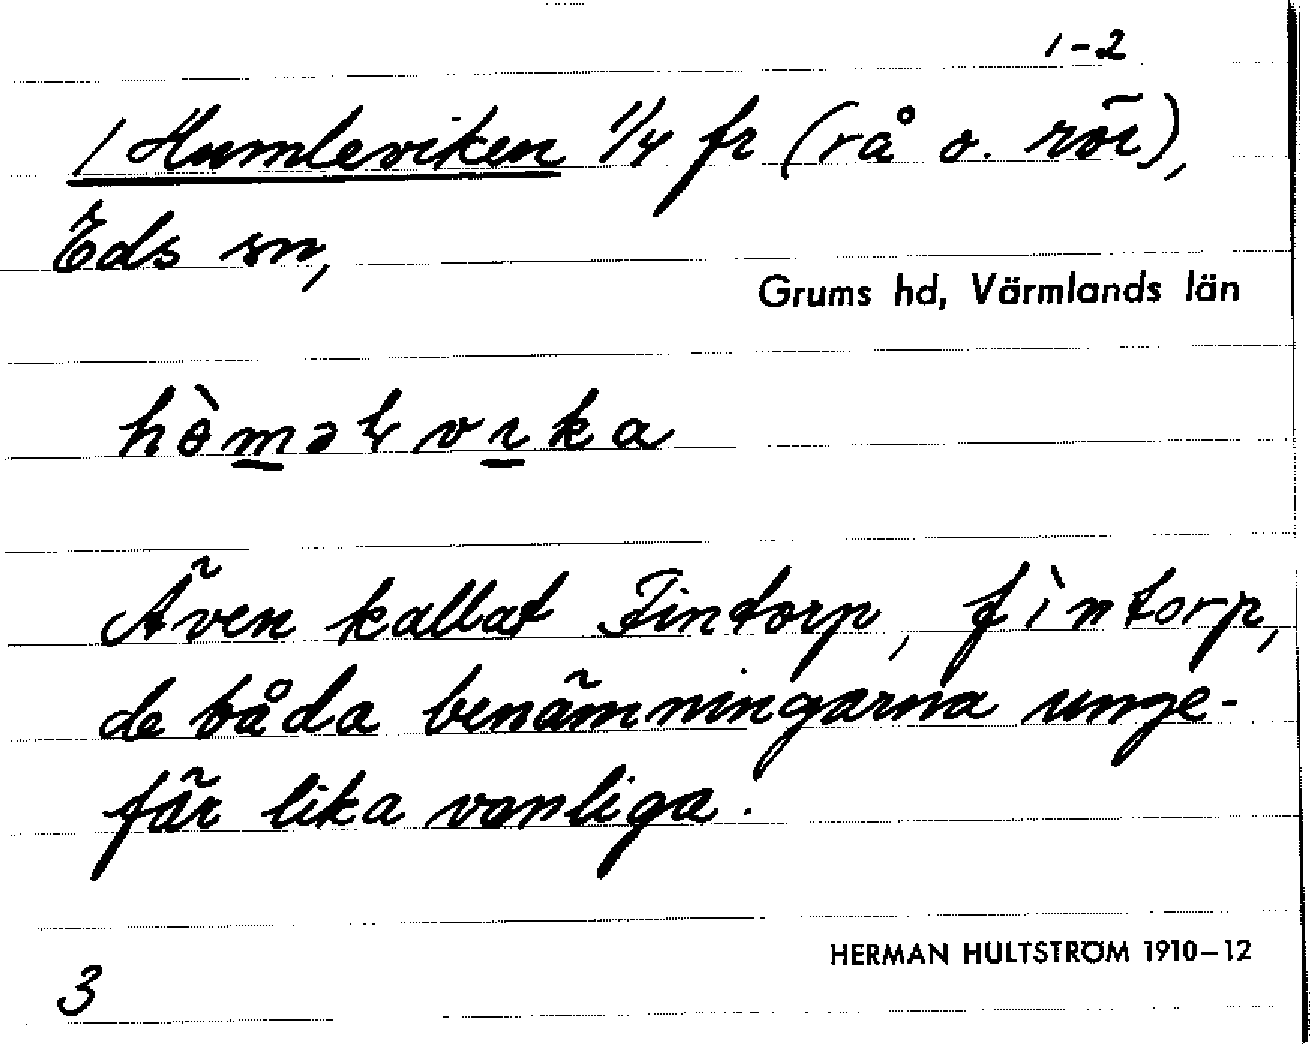 1-2
1 Humleviken 1/4 fr (rå o. rör),
Eds sn,
Grums hd, Värmlands län
hòməɫvıka
Även kallat Fintorp, fìntorp,
de båda benämningarna unge-
fär lika vanliga.
HERMAN HULTSTRÖM 1910–12
3